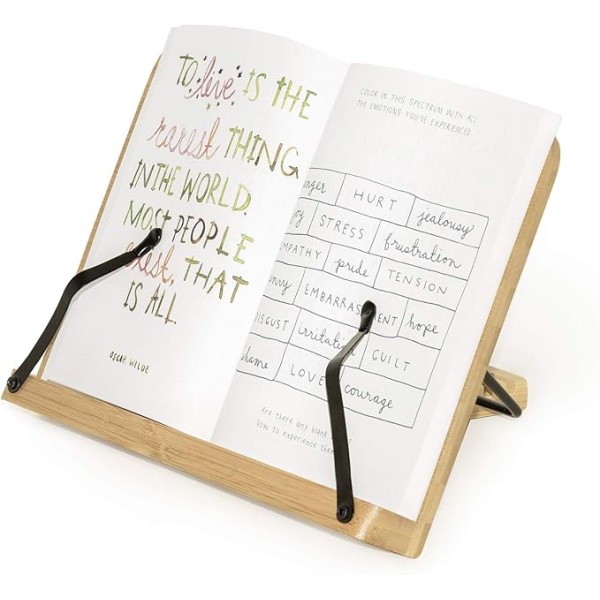 TO live IS THE
rarest THING
IN THE WORLD.
MOST PEOPLE
exist, THAT
IS ALL.
OSCAR WILDE
COLOR IN THIS SPECTRUM WITH ALL
THE EMOTIONS YOU'VE EXPERIENCED.
HURT jealousy
STRESS frustration
pride TENSION
EMBARRAS ENT hope
irritati GUILT
LOVE courage
Are there any blank
How to experience